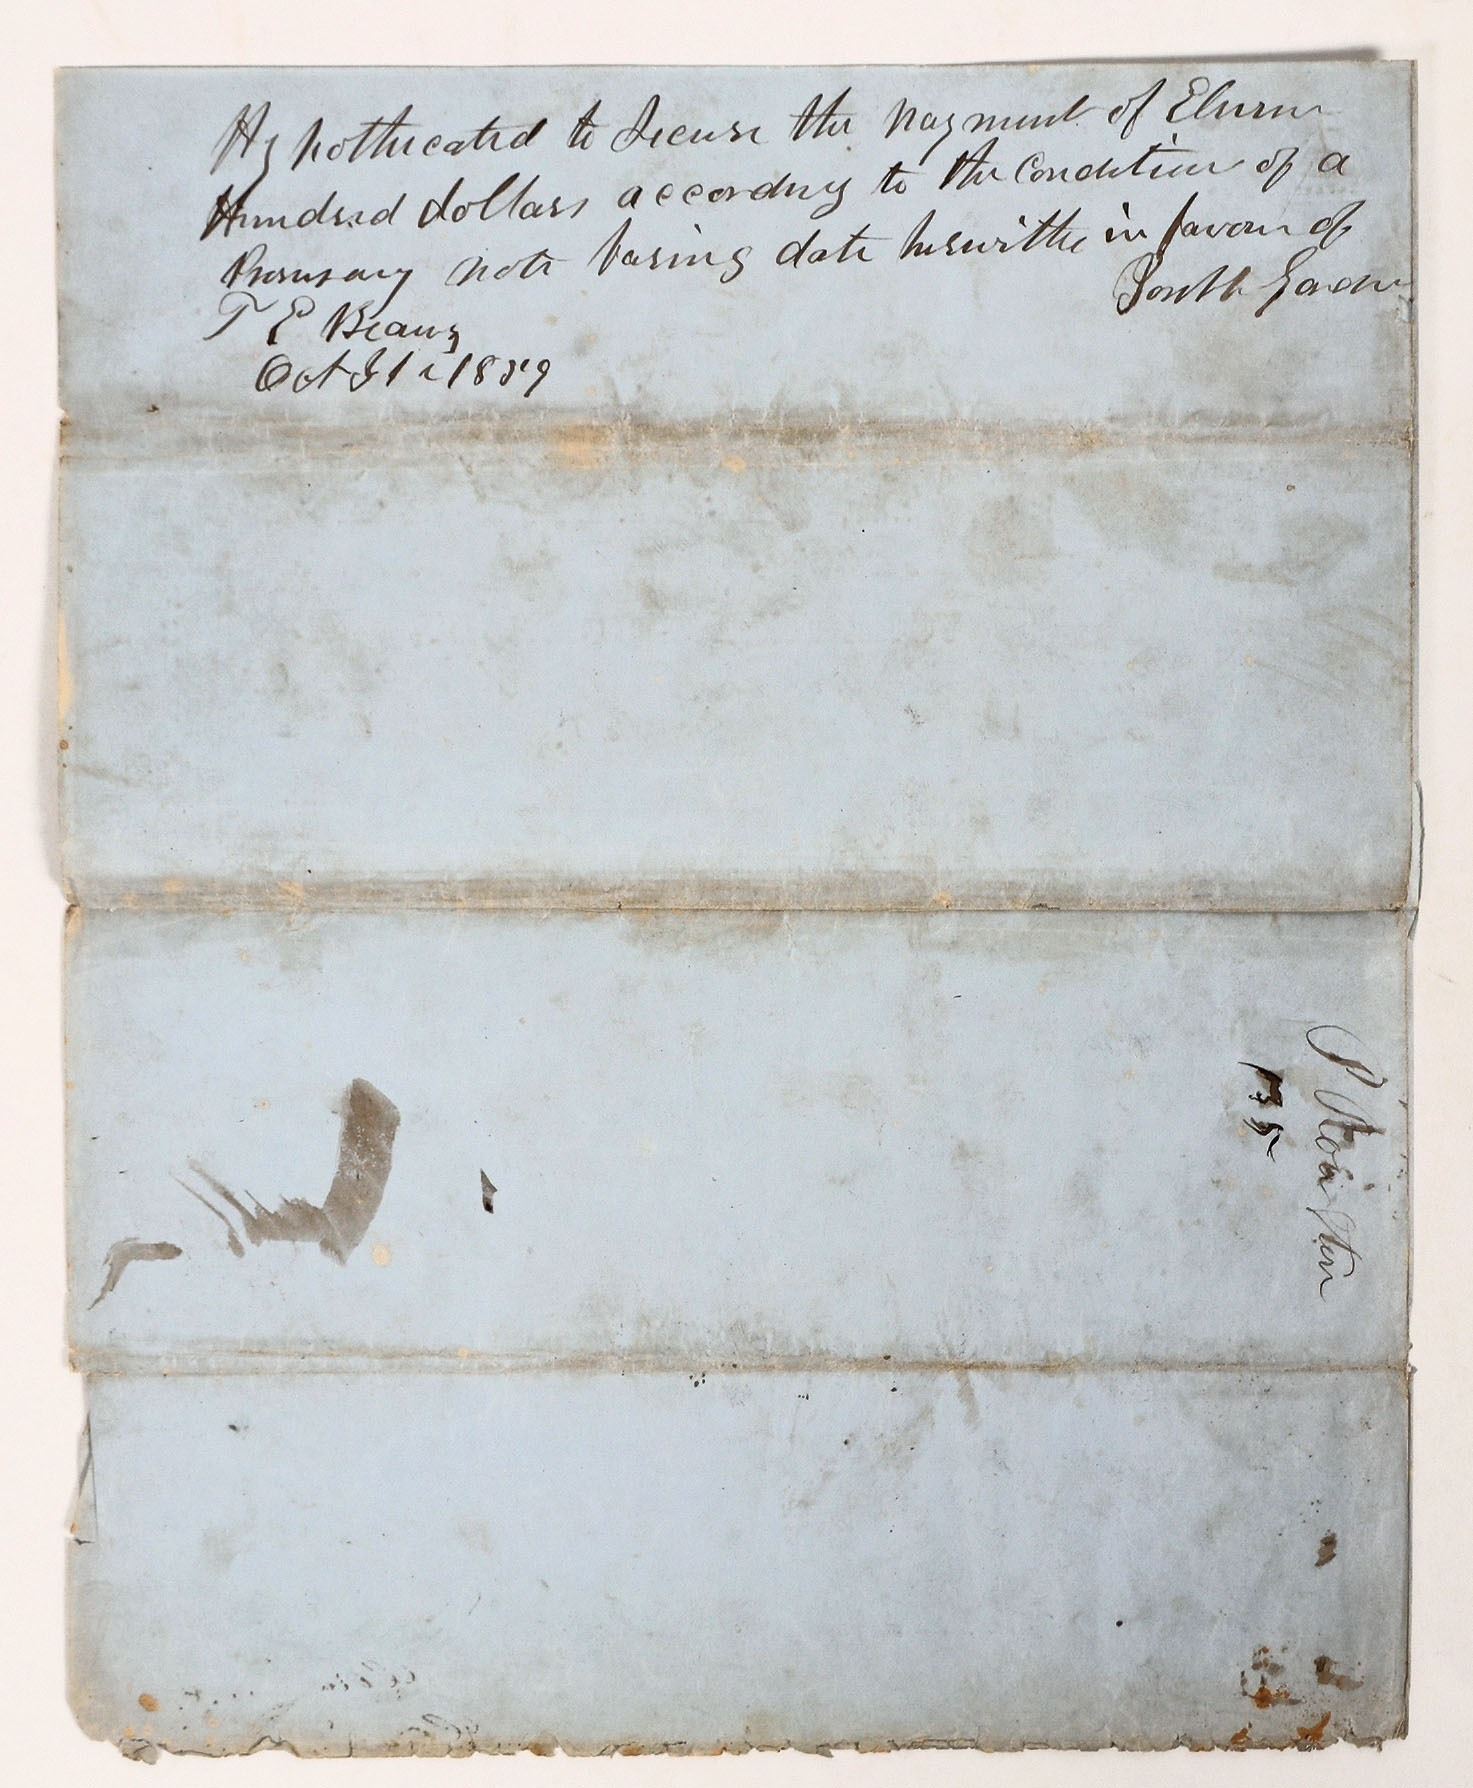 Hypothecated to Secure the payment of Eleven
Hundred dollars according to the Condition of a
Promisary note baring date herewith in favour of
T E Beaug
Joseph
Oct 31 1859
P
135